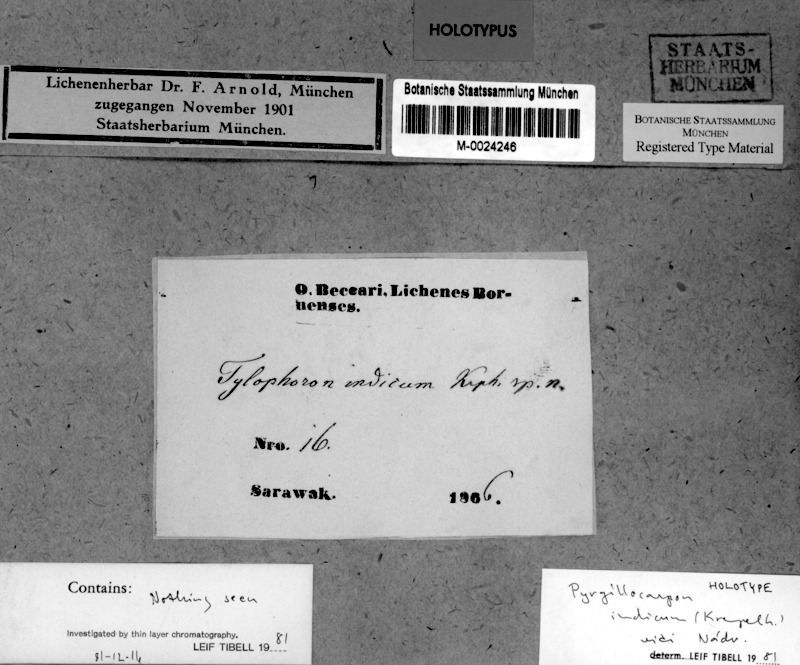 HOLOTYPUS
STAATS-
HERBARIUM
MÜNCHEN
Lichenenherbar Dr. F. Arnold, München
zugegangen November 1901
Staatsherbarium München.
Botanische Staatssammlung München
M-0024246
BOTANISCHE STAATSSAMMLUNG
MÜNCHEN
Registered Type Material
O. Beccari, Lichenes Bor-
nenses.
Tylophoron indicum Krph. sp. n.
Nro. 16.
Sarawak. 1866.
Contains: Nothing seen
Investigated by thin layer chromatography.
LEIF TIBELL 1981
81-12-16
Pyrgillocarpon HOLOTYPE
indicum (Krempelh.)
Nádv.
determ. LEIF TIBELL 1981